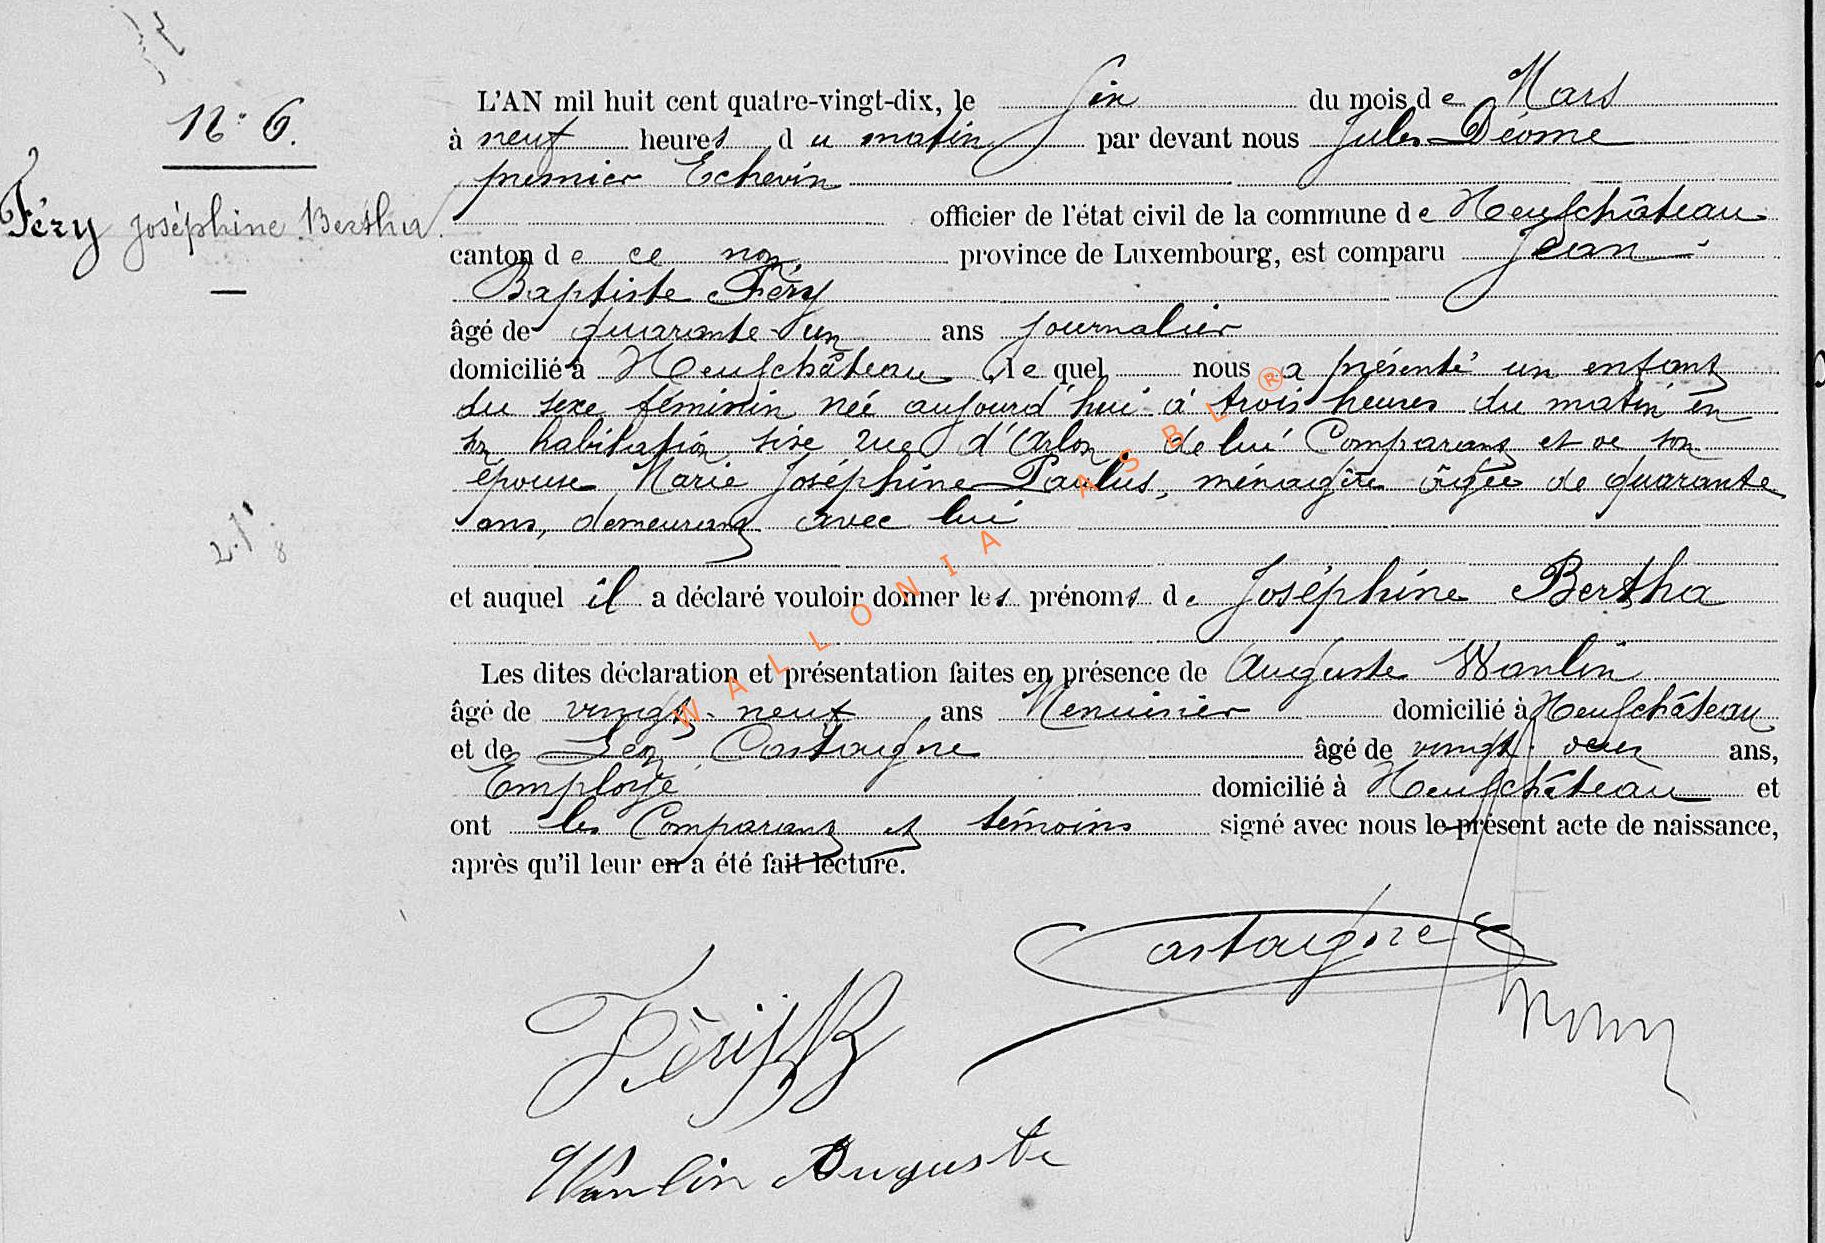 N° 6.
Féry Joséphine Bertha.
L'AN mil huit cent quatre-vingt-dix, le six du mois de Mars
à neuf heures du matin par devant nous Jules Déome
premier Echevin
officier de l'état civil de la commune de Neufchâteau
canton de ce nom, province de Luxembourg, est comparu Jean-
Baptiste Féry
âgé de quarante-un ans journalier
domicilié à Neufchâteau, lequel nous a présenté un enfant
du sexe féminin née aujourd'hui à trois heures du matin en
son habitation sise rue d'Arlon, de lui Comparant et de son
épouse Marie Joséphine Paulus, ménagère âgée de quarante
ans, demeurant avec lui
et auquel il a déclaré vouloir donner les prénoms de Joséphine Bertha
Les dites déclaration et présentation faites en présence de Auguste Wanlin
âgé de vingt-neuf ans Menuisier domicilié à Neufchâteau
et de Léon Castaigne âgé de vingt-deux ans,
Employé domicilié à Neufchâteau et
ont les Comparant et témoins signé avec nous le présent acte de naissance,
après qu'il leur en a été fait lecture.
Castaigne
Wanlin Auguste
WALLONIA ASBL®